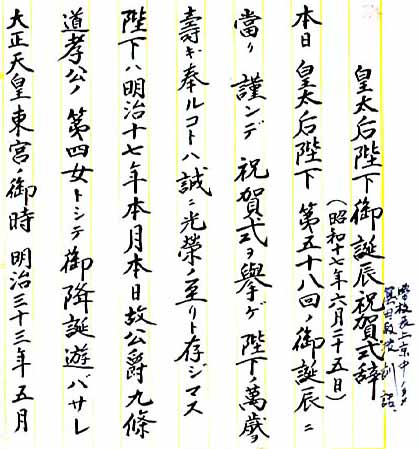 皇太后陛下御誕辰祝賀式辞
(昭和十七年六月二十五日)
学校長上京中ノタメ
訓話
本日 皇太后陛下 第五十八回ノ御誕辰ニ
當リ 謹ンデ 祝賀式ヲ擧ゲ 陛下ノ萬歳ヲ
壽ギ奉ルコトハ誠ニ光榮ノ至リト存ジマス
陛下ハ明治十七年本月本日故公爵九條
道孝公ノ第四女トシテ御降誕遊バサレ
大正天皇東宮ノ御時 明治三十三年五月